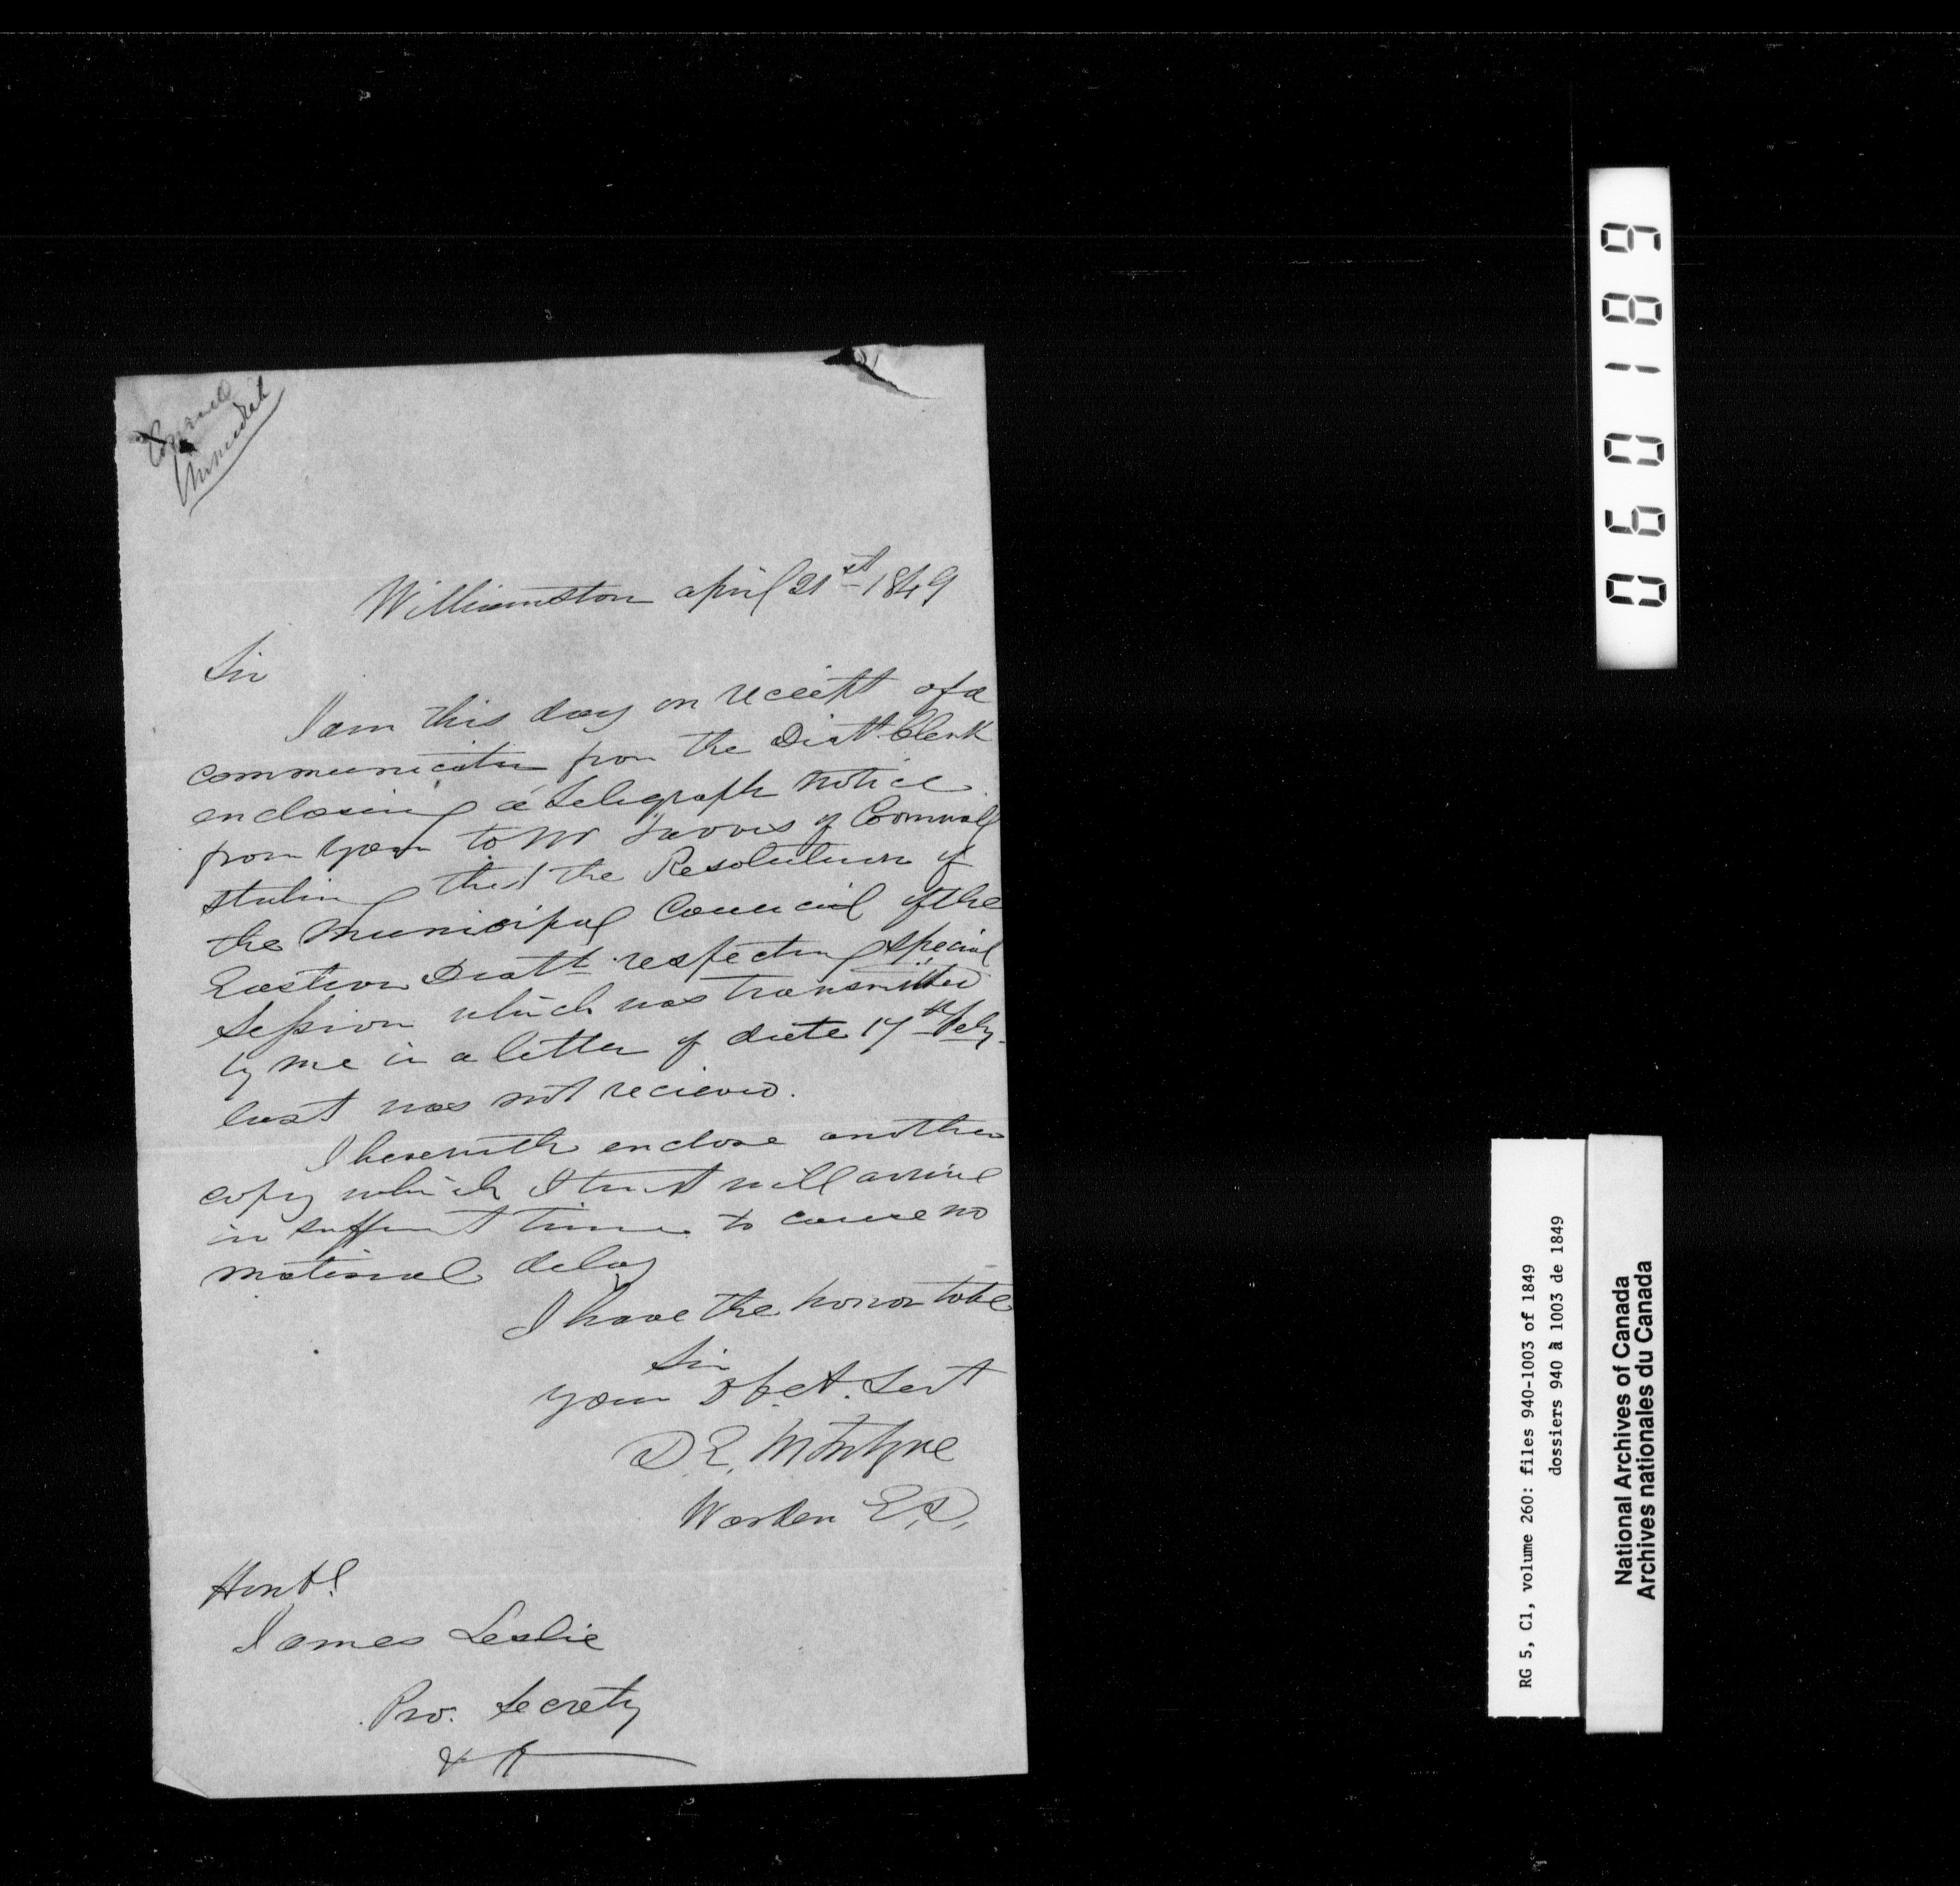 Council
Immediate
Williamstown april 21st 1849
Sir
I am this day on receipt of a
communication from the Distt. Clerk
enclosing a telegraph notice
from you to Mr Jarvis of Cornwall
stating that the Resolution of
the Municipal Council of the
Eastern Distt respecting special
Session which was transmitted
by me in a letter of date 17th Feby.
last was not recieved.
I herewith enclose another
copy which I trust will arrive
in suffient time to cause no
material delay
I have the honor to be
Sir
your Obt. Sert
D. E. McIntyre
Warden E. D.
Honbl.
James Leslie
Pro. Secrety
060189
RG 5, C1, volume 260: files 940-1003 of 1849
dossiers 940 à 1003 de 1849
National Archives of Canada
Archives nationales du Canada